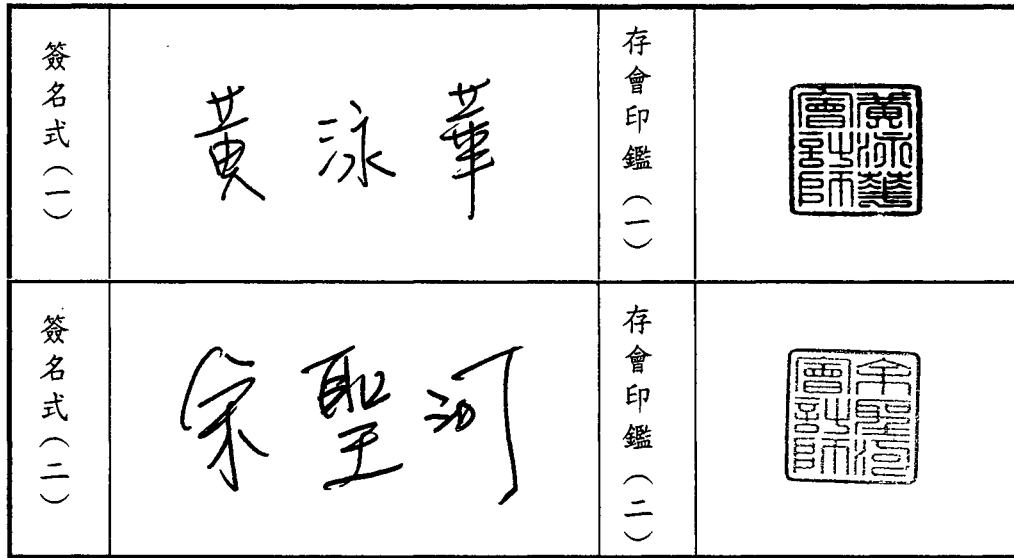 簽名式（一）
黃泳華
存會印鑑（一）
黃泳華
會計師
簽名式（二）
余聖河
存會印鑑（二）
余聖河
會計師